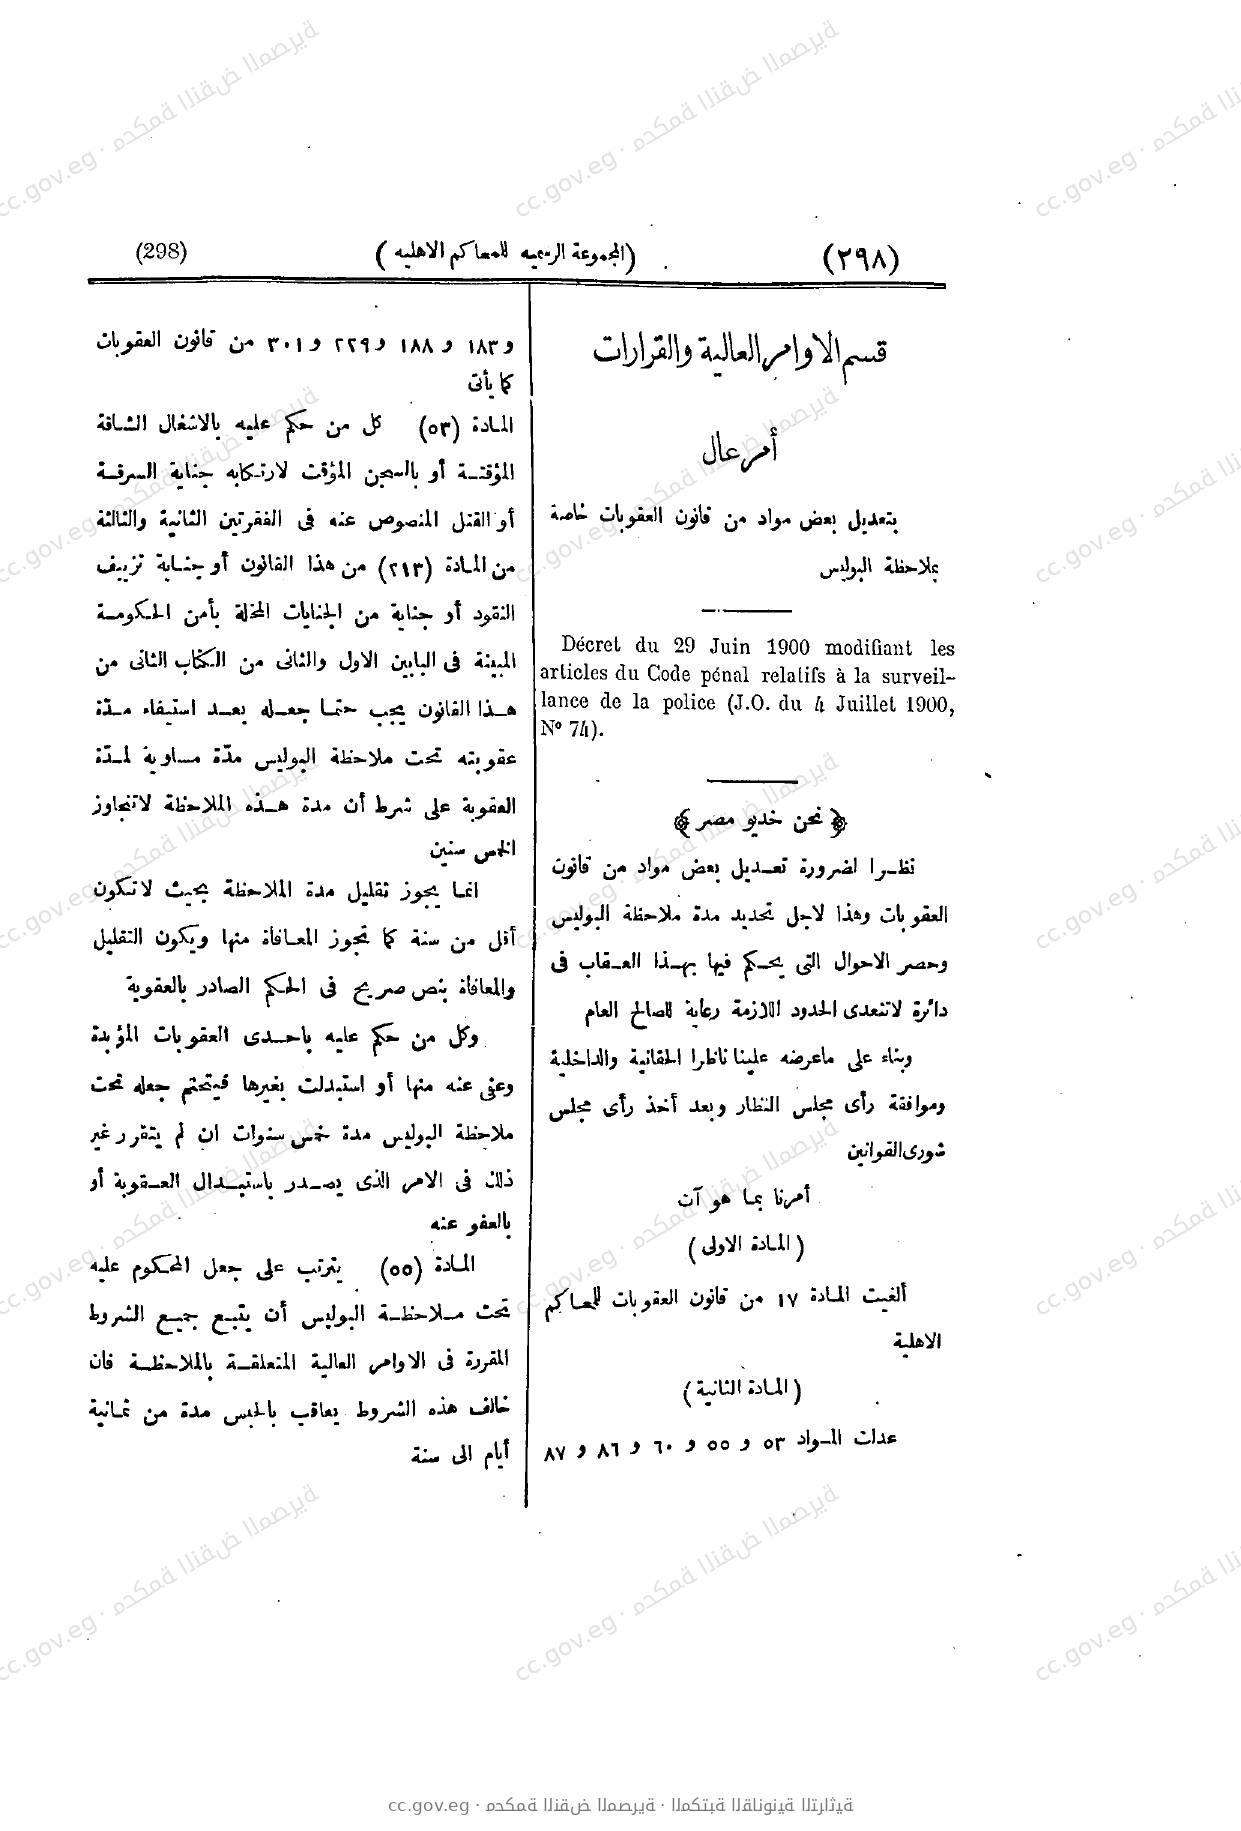 (٢٩٨) (المجموعة الرسميه للمحاكم الاهليه) (298)
قسم الاوامر العالية والقرارات
أمر عال
بتعديل بعض مواد من قانون العقوبات خاصة
بملاحظة البوليس
Décret du 29 Juin 1900 modifiant les
articles du Code pénal relatifs à la surveil-
lance de la police (J.O. du 4 Juillet 1900,
N° 74).
﴿ نحن خديو مصر ﴾
نظرا لضرورة تعديل بعض مواد من قانون
العقوبات وهذا لاجل تحديد مدة ملاحظة البوليس
وحصر الاحوال التى يحكم فيها بهذا العقاب فى
دائرة لا تتعدى الحدود اللازمة رعاية للصالح العام
وبناء على ماعرضه علينا ناظرا الحقانية والداخلية
وموافقة رأى مجلس النظار وبعد أخذ رأى مجلس
شورى القوانين
أمرنا بما هو آت
(المادة الاولى)
ألغيت المادة ١٧ من قانون العقوبات للمحاكم
الاهلية
(المادة الثانية)
عدلت المواد ٥٣ و ٥٥ و ٦٠ و ٨٦ و ٨٧
و ١٨٣ و ١٨٨ و ٢٢٩ و ٣٠١ من قانون العقوبات
كما يأتى
المادة (٥٣) كل من حكم عليه بالاشغال الشاقة
المؤقتة أو بالسجن المؤقت لارتكابه جناية السرقة
أو القتل المنصوص عنه فى الفقرتين الثانية والثالثة
من المادة (٢١٣) من هذا القانون أو جناية تزييف
النقود أو جناية من الجنايات المخلة بأمن الحكومة
المبينة فى البابين الاول والثانى من الكتاب الثانى من
هذا القانون يجب حتما جعله بعد استيفاء مدّة
عقوبته تحت ملاحظة البوليس مدّة مساوية لمدّة
العقوبة على شرط أن مدة هذه الملاحظة لاتتجاوز
الخمس سنين
انما يجوز تقليل مدة الملاحظة بحيث لا تكون
أقل من سنة كما تجوز المعافاة منها ويكون التقليل
والمعافاة بنص صريح فى الحكم الصادر بالعقوبة
وكل من حكم عليه باحدى العقوبات المؤبدة
وعفى عنه منها أو استبدلت بغيرها فيتحتم جعله تحت
ملاحظة البوليس مدة خمس سنوات ان لم يتقرر غير
ذلك فى الامر الذى يصدر باستبدال العقوبة أو
بالعفو عنه
المادة (٥٥) يترتب على جعل المحكوم عليه
تحت ملاحظة البوليس أن يتبع جميع الشروط
المقررة فى الاوامر العالية المتعلقة بالملاحظة فان
خالف هذه الشروط يعاقب بالحبس مدة من ثمانية
أيام الى سنة
cc.gov.eg · محكمة النقض المصرية · المكتبة القانونية التراثية